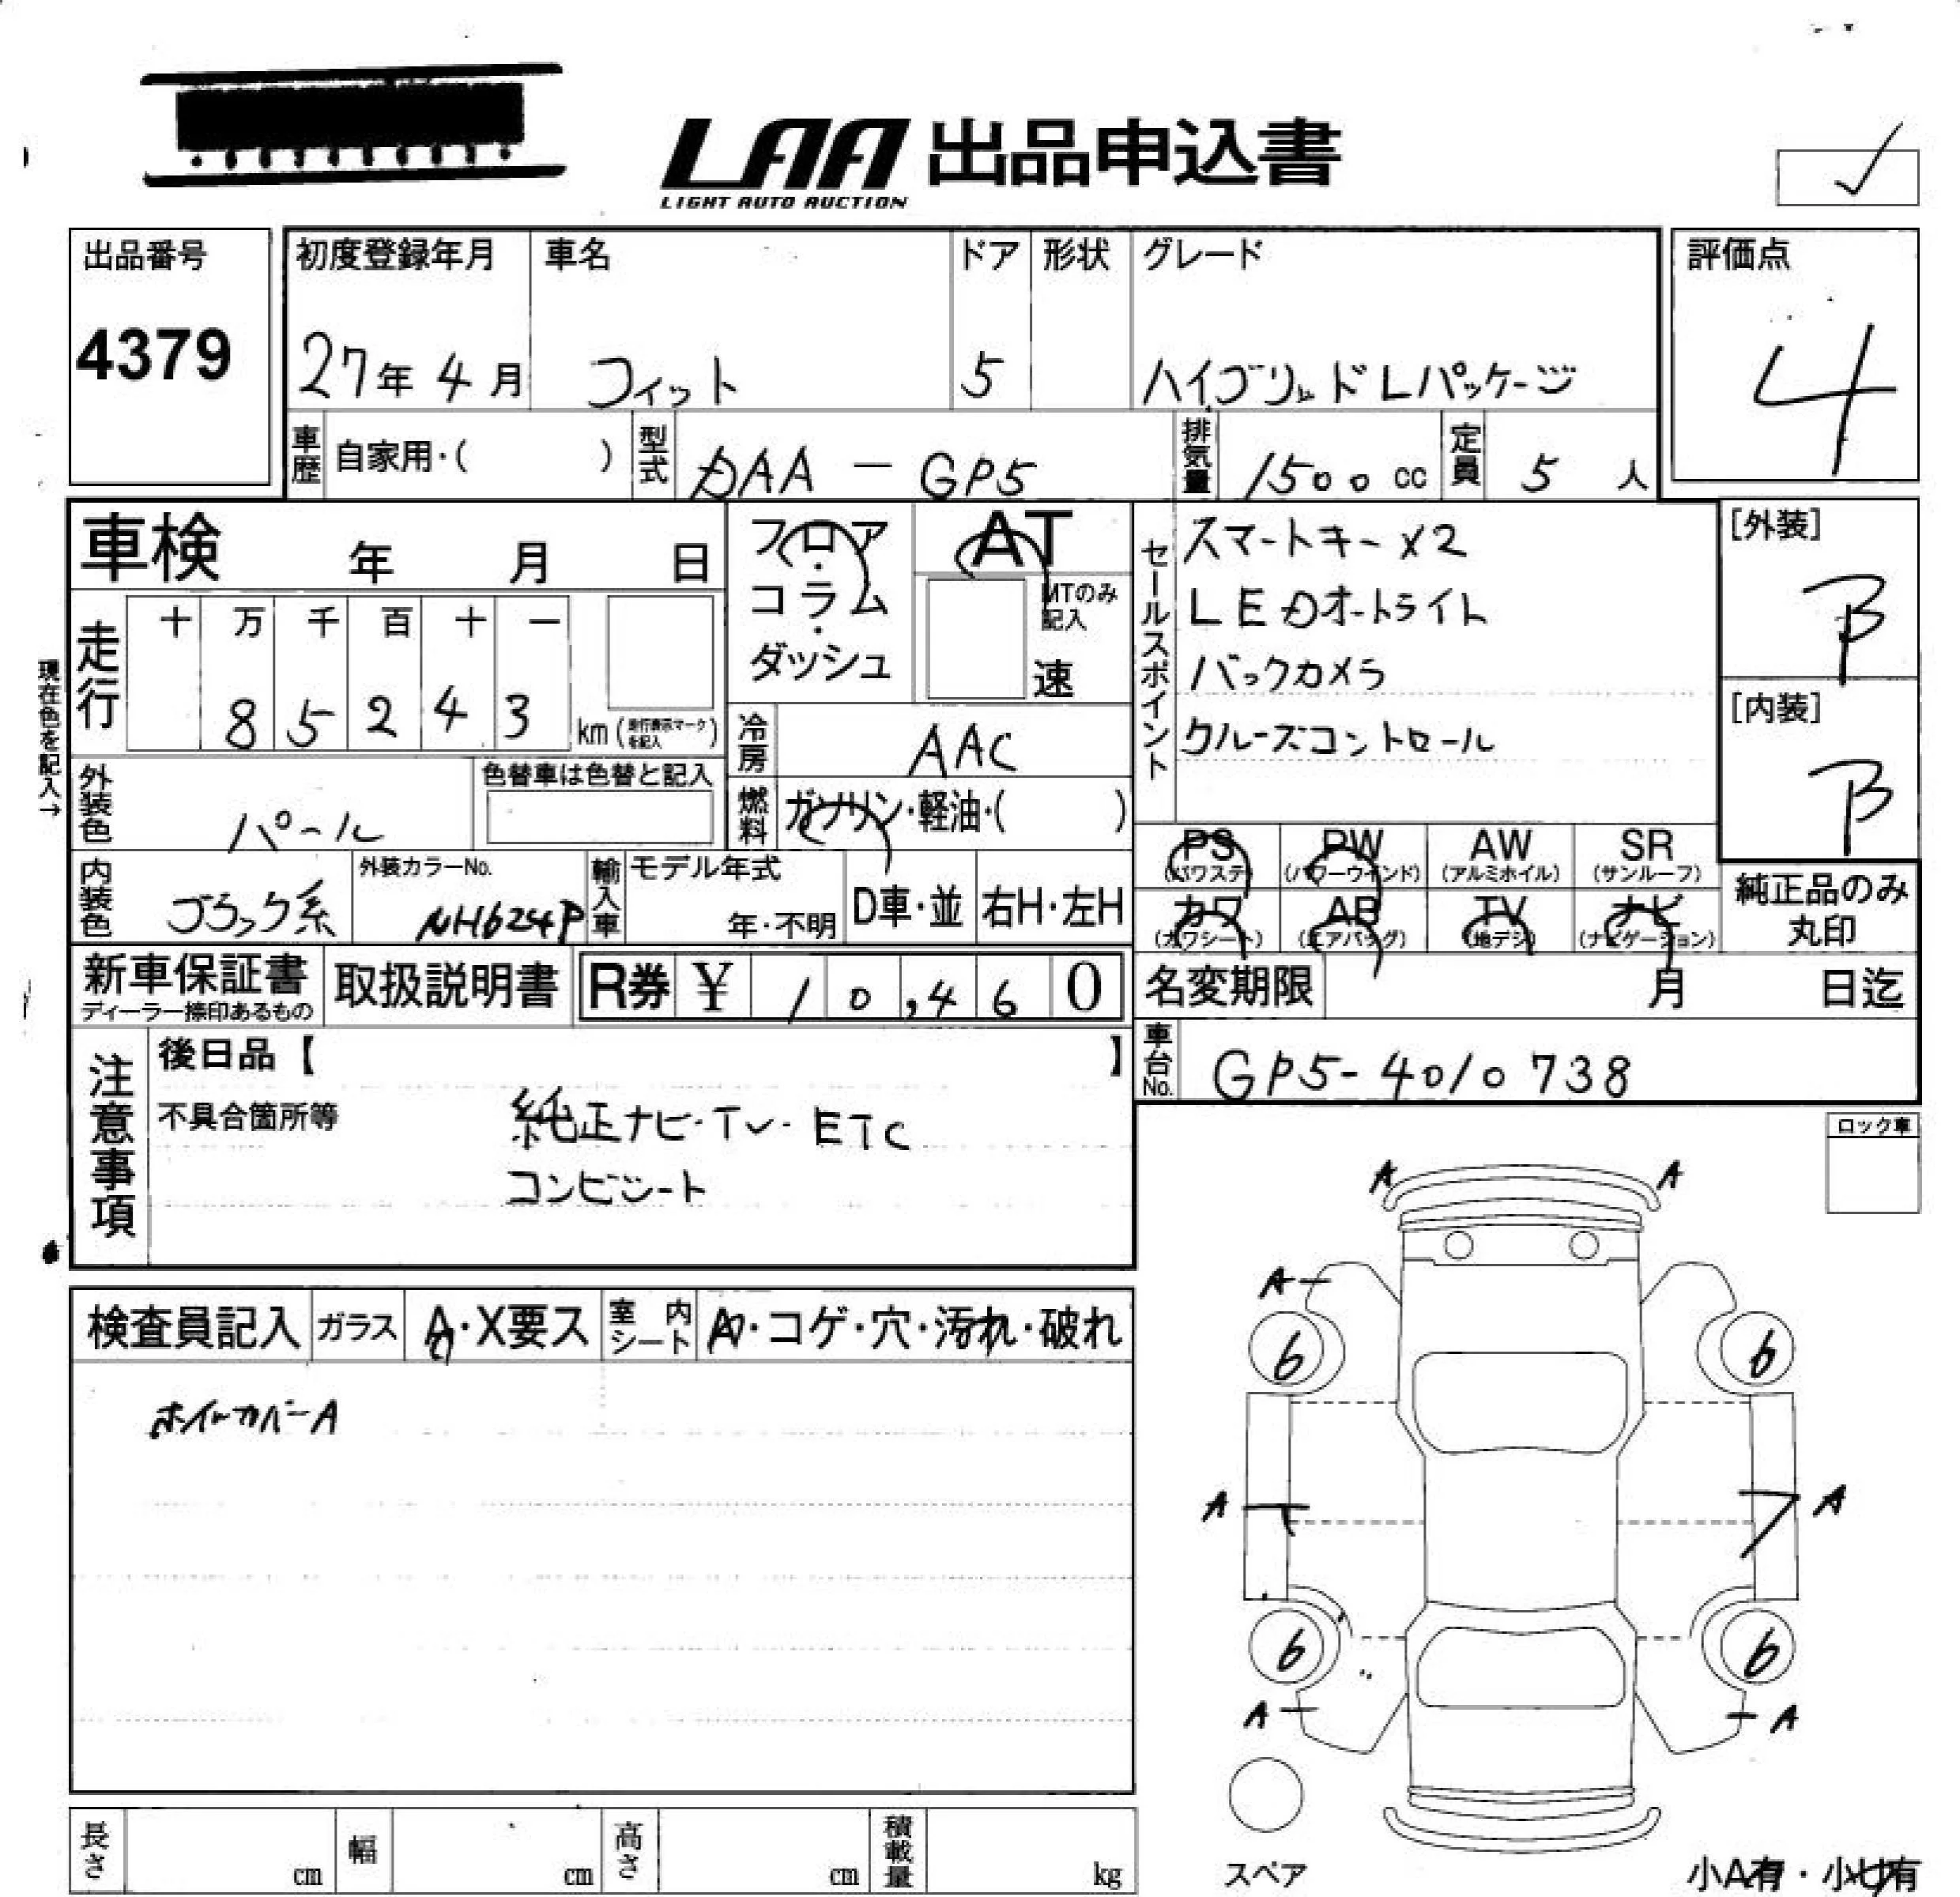 LAA 出品申込書
LIGHT AUTO AUCTION
出品番号
4379
初度登録年月 車名 ドア 形状 グレード
27年 4月 フィット 5 ハイブリッド Lパッケージ
評価点
4
車歴 自家用・( ) 型式 DAA - GP5 排気量 1500 cc 定員 5 人
車検 年 月 日
フロア・コラム・ダッシュ
AT
MTのみ記入
速
セールスポイント
スマートキー×2
LEDオートライト
バックカメラ
クルーズコントロール
[外装]
B
[内装]
B
現在色を記入→
走行 十 万 千 百 十 一
8 5 2 4 3 km (走行表示マークを記入)
冷房 AAC
外装色 パール 色替車は色替と記入
燃料 ガソリン・軽油・( )
内装色 ブラック系 外装カラーNo. NH624P
輸入車 モデル年式 年・不明 D車・並 右H・左H
PS (パワステ) PW (パワーウインド) AW (アルミホイル) SR (サンルーフ)
カワ (カワシート) AB (エアバッグ) TV (地デジ) ナビ (ナビゲーション)
純正品のみ丸印
新車保証書 ディーラー捺印あるもの 取扱説明書 R券 ¥ 10,460
名変期限 月 日迄
車台No. GP5-4010738
注意事項
後日品【 】
不具合箇所等 純正ナビ-TV-ETC
コンビシート
ロック車
検査員記入 ガラス A・X要ス 室内シート A・コゲ・穴・汚れ・破れ
ホイルカバーA
A A
A
6 6
A A
6 6
A A
長さ cm 幅 cm 高さ cm 積載量 kg
スペア
小A有・小U有